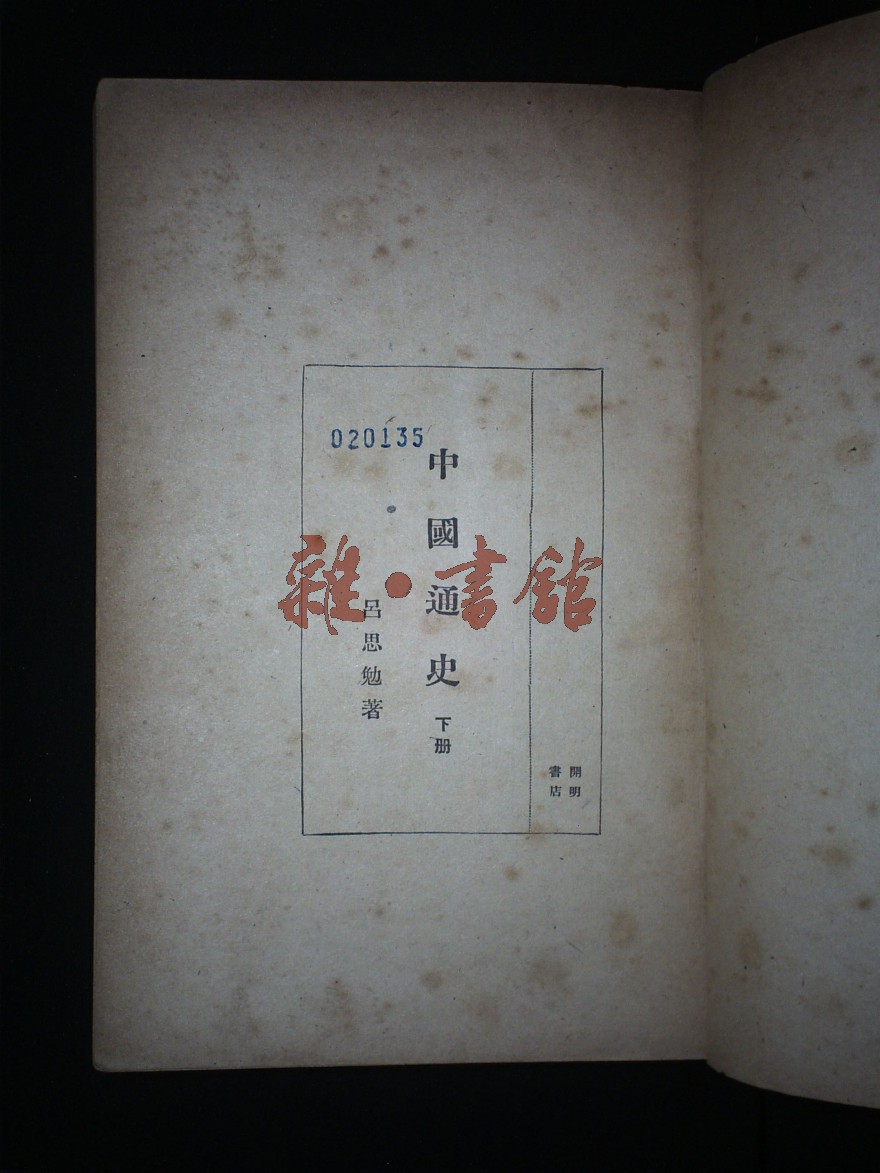 開明
書店
中國通史 下册
呂思勉著
020135
雜•書館